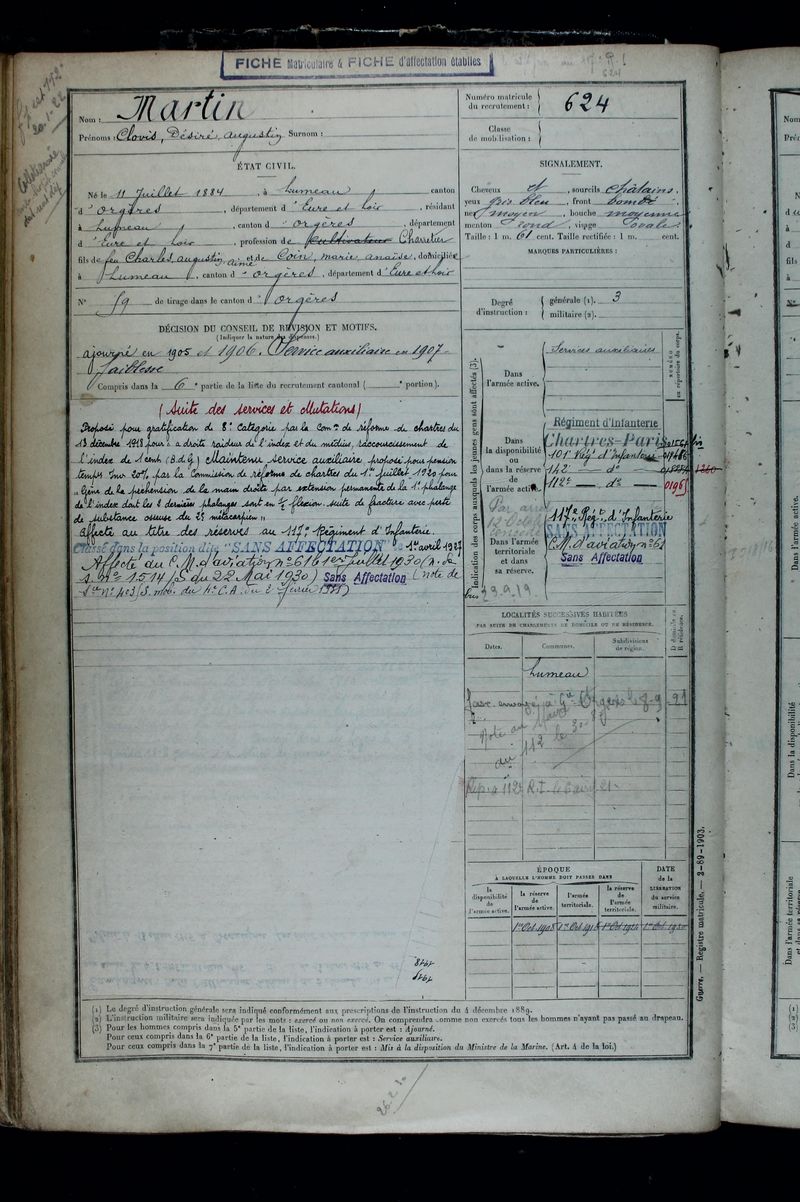 FICHE Matriculaire & FICHE d'affectation établies
Nom : Martin
Prénoms : Clovis, Désiré, Augustin Surnom :
Numéro matricule du recrutement : 624
Classe de mobilisation :
ÉTAT CIVIL.
Né le 11 Juillet 1884, à Lumeau, canton
d'Orgères, département d'Eure et Loir, résidant
à Lumeau, canton d'Orgères, département
d'Eure et Loir, profession de Cultivateur Charretier
fils de feu Charles Augustin Aimé et de Coin, Marie Anaïse, domiciliés
à Lumeau, canton d'Orgères, département d'Eure et Loir
N° 59 de tirage dans le canton d'Orgères
SIGNALEMENT.
Cheveux et, sourcils châtains,
yeux gris bleu, front bombé,
nez moyen, bouche moyenne
menton rond, visage ovale
Taille : 1 m. 61 cent. Taille rectifiée : 1 m. cent.
MARQUES PARTICULIÈRES :
Degré d'instruction : générale (1). 3
militaire (2).
DÉCISION DU CONSEIL DE RÉVISION ET MOTIFS.
(Indiquer la nature des dispenses.)
ajourné en 1905 et 1906. Service auxiliaire en 1907
faiblesse
Compris dans la 6e partie de la liste du recrutement cantonal ( e portion).
(Suite des services et Mutations)
Proposé pour gratification de 8e Catégorie par la Comon de réforme de Chartres du
13 décembre 1918 pour : a droite raideur de l'index et du médius, raccourcissement de
l'index de 1 cent. (B.d.G) Maintenu service auxiliaire, proposé pour pension
temp. Inv 20% par la Commission de réforme de Chartres du 1er Juillet 1920 pour
"Gêne de la préhension de la main droite par extension permanente de la 1e phalange
de l'index dont les 2 dernières phalanges sont en 1/2 flexion suite de fracture avec perte
de substance osseuse du 2e métacarpien"
Affecté au titre des réserves au 117e Régiment d'Infanterie.
Classé dans la position dite "SANS AFFECTATION" le 1er avril 1927
Affecté au C.M. d'aviation n° 61 6 1er juillet 1930 (n. de
s. n° 1514/S du 22 Mai 1930) Sans Affectation (note de
Sce N° 403/S. mob. du 4e C.A. du 2 février 1931)
Indication des corps auxquels les jeunes gens sont affectés (3).
NUMÉRO au répertoire du corps.
Dans l'armée active.
Services auxiliaires
Dans la disponibilité ou dans la réserve de l'armée active.
Régiment d'Infanterie
Chartres-Paris
101e Rég. d'Infanterie
142e do
112e do
Dans l'armée territoriale et dans sa réserve.
117e Regt. d'Infanterie
SANS AFFECTATION
C.M. d'aviation n° 61
Sans Affectation
LOCALITÉS SUCCESSIVES HABITÉES
PAR SUITE DE CHANGEMENTS DE DOMICILE OU DE RÉSIDENCE.
Dates. Communes. Subdivisions de région. D domicile ou R résidence.
Lumeau
ÉPOQUE
À LAQUELLE L'HOMME DOIT PASSER DANS
la disponibilité de l'armée active.
la réserve de l'armée active.
l'armée territoriale.
la réserve de l'armée territoriale.
DATE de la LIBÉRATION du service militaire.
1er Oct. 1908 1er Oct. 1918 1er Oct. 1924 1er Oct. 1930
Guerre. — Registre matricule. — 2-89-1903.
(1) Le degré d'instruction générale sera indiqué conformément aux prescriptions de l'instruction du 4 décembre 1889.
(2) L'instruction militaire sera indiquée par les mots : exercé ou non exercé. On comprendra comme non exercés tous les hommes n'ayant pas passé au drapeau.
(3) Pour les hommes compris dans la 5e partie de la liste, l'indication à porter est : Ajourné.
Pour ceux compris dans la 6e partie de la liste, l'indication à porter est : Service auxiliaire.
Pour ceux compris dans la 7e partie de la liste, l'indication à porter est : Mis à la disposition du Ministre de la Marine. (Art. 4 de la loi.)